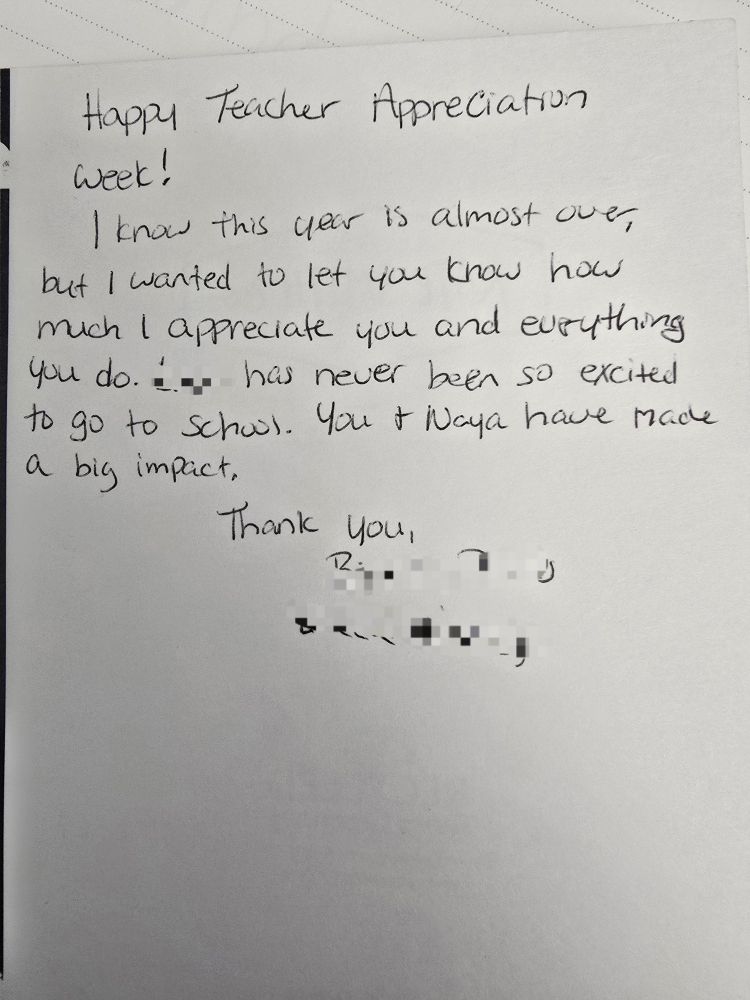 Happy Teacher Appreciation
week!
I know this year is almost over,
but I wanted to let you know how
much I appreciate you and everything
you do. has never been so excited
to go to school. You & Naya have made
a big impact.
Thank you,